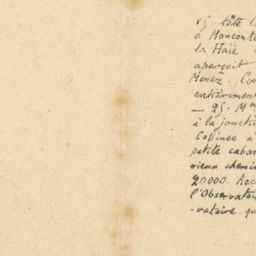 côte
à Moncont
la Haie
aperçoit
Menez. Co
entièrement
— 25. M
à la jonctio
Collinée à
petite caban
vieux chemin
20000 hec
l'Observatoi
-vatoire qu